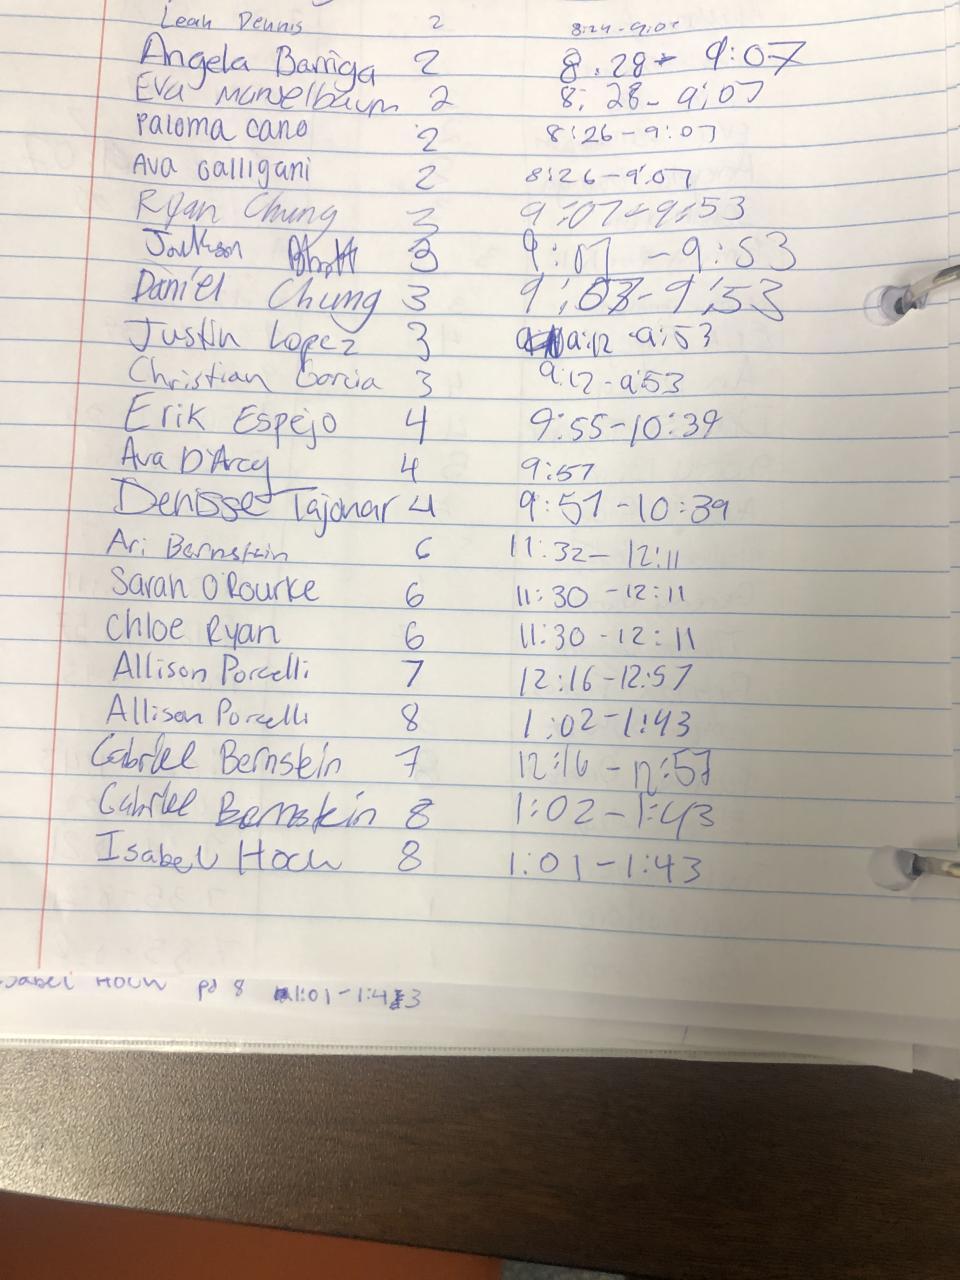 Leah Dennis 2 8:24-9:07
Angela Barriga 2 8:28- 9:07
Eva Mandelbaum 2 8:28-9:07
Paloma Cano 2 8:26-9:07
Ava Galligani 2 8:26-9:07
Ryan Chung 3 9:07-9:53
Jackson 3 9:07-9:53
Daniel Chung 3 9:07-9:53
Justin Lopez 3 9:12-9:53
Christian Garcia 3 9:12-9:53
Erik Espejo 4 9:55-10:39
Ava D'Arcy 4 9:57
Denisse Tajonar 4 9:57-10:39
Ari Bernstein 6 11:32-12:11
Sarah O'Rourke 6 11:30-12:11
Chloe Ryan 6 11:30-12:11
Allison Porcelli 7 12:16-12:57
Allison Porcelli 8 1:02-1:43
Gabriel Bernstein 7 12:16-12:57
Gabriel Bernstein 8 1:02-1:43
Isabel Hoch 8 1:01-1:43
sabel Hoch pd 8 1:01-1:43